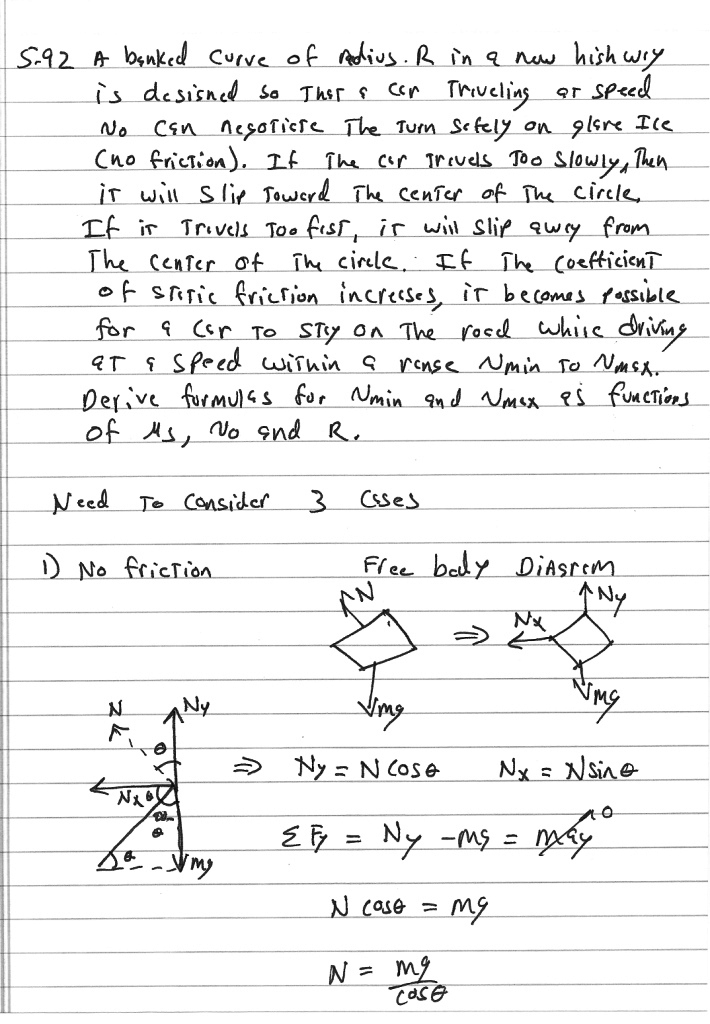 5-92 A banked curve of radius R in a new highway
is designed so that a car traveling at speed
v0 can negotiate the turn safely on glare Ice
(no friction). If the car travels too slowly, then
it will slip toward the center of the circle,
If it travels too fast, it will slip away from
the center of the circle. If the coefficient
of static friction increases, it becomes possible
for a car to stay on the road while driving
at a speed within a range vmin to vmax.
Derive formulas for vmin and vmax as functions
of μs, v0 and R.
Need to consider 3 cases
1) No friction Free body Diagram
N
mg
⇒
Nx
Ny
mg
N
Ny
θ
Nx
θ
θ
θ
mg
⇒ Ny = N cosθ Nx = N sinθ
Σ Fy = Ny - mg = may 0
N cosθ = mg
N = mg
cosθ